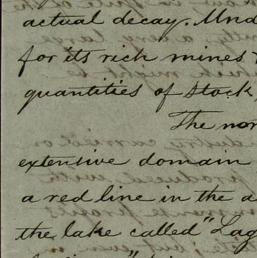 actual decay. Und
for its rich mines
quantities of stock
The nor
extensive domain
a red line in the a
the lake called "Lag